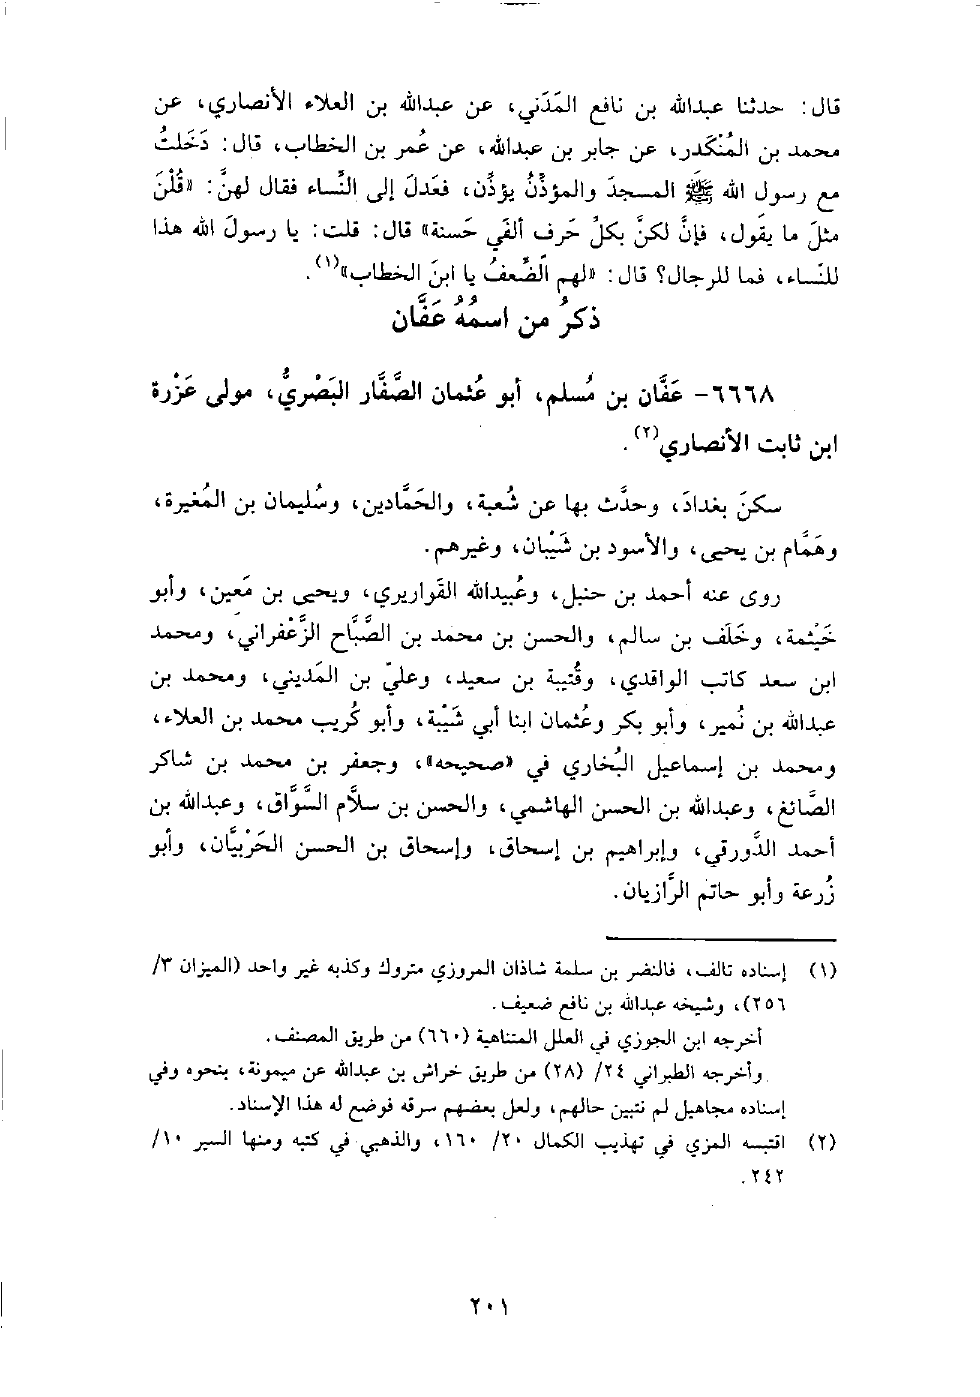 قال: حدثنا عبدالله بن نافع المَدَني، عن عبدالله بن العلاء الأنصاري، عن
محمد بن المُنْكَدر، عن جابر بن عبدالله، عن عُمر بن الخطاب، قال: دَخَلتُ
مع رسول الله ﷺ المسجدَ والمؤذِّنُ يؤذِّن، فعَدلَ إلى النِّساء فقال لهنَّ: «قُلْنَ
مثلَ ما يقول، فإنَّ لكنَّ بكلِّ حَرف ألفَي حَسنة» قال: قلت: يا رسولَ الله هذا
للنِّساء، فما للرجال؟ قال: «لهم الضِّعفُ يا ابنَ الخطاب»(١).
ذكرُ من اسمُهُ عَفَّان
٦٦٦٨- عَفَّان بن مُسلم، أبو عُثمان الصَّفَّار البَصْريُّ، مولى عَزْرة
ابن ثابت الأنصاري(٢).
سكنَ بغدادَ، وحدَّث بها عن شُعبة، والحَمَّادين، وسُليمان بن المُغيرة،
وهَمَّام بن يحيى، والأسود بن شَيْبان، وغيرهم.
روى عنه أحمد بن حنبل، وعُبيدالله القَواريري، ويحيى بن مَعين، وأبو
خَيْثمة، وخَلَف بن سالم، والحسن بن محمد بن الصَّبَّاح الزَّعْفراني، ومحمد
ابن سعد كاتب الواقدي، وقُتيبة بن سعيد، وعليّ بن المَديني، ومحمد بن
عبدالله بن نُمير، وأبو بكر وعُثمان ابنا أبي شَيْبة، وأبو كُريب محمد بن العلاء،
ومحمد بن إسماعيل البُخاري في «صحيحه»، وجعفر بن محمد بن شاكر
الصَّائغ، وعبدالله بن الحسن الهاشمي، والحسن بن سلَّام السَّوَّاق، وعبدالله بن
أحمد الدَّورقي، وإبراهيم بن إسحاق، وإسحاق بن الحسن الحَرْبيَّان، وأبو
زُرعة وأبو حاتم الرَّازيان.
(١) إسناده تالف، فالنضر بن سلمة شاذان المروزي متروك وكذبه غير واحد (الميزان ٣/
٢٥٦)، وشيخه عبدالله بن نافع ضعيف.
أخرجه ابن الجوزي في العلل المتناهية (٦٦٠) من طريق المصنف.
وأخرجه الطبراني ٢٤/ (٢٨) من طريق خراش بن عبدالله عن ميمونة، بنحوه وفي
إسناده مجاهيل لم نتبين حالهم، ولعل بعضهم سرقه فوضع له هذا الإسناد.
(٢) اقتبسه المزي في تهذيب الكمال ٢٠/ ١٦٠، والذهبي في كتبه ومنها السير ١٠/
٢٤٢.
٢٠١